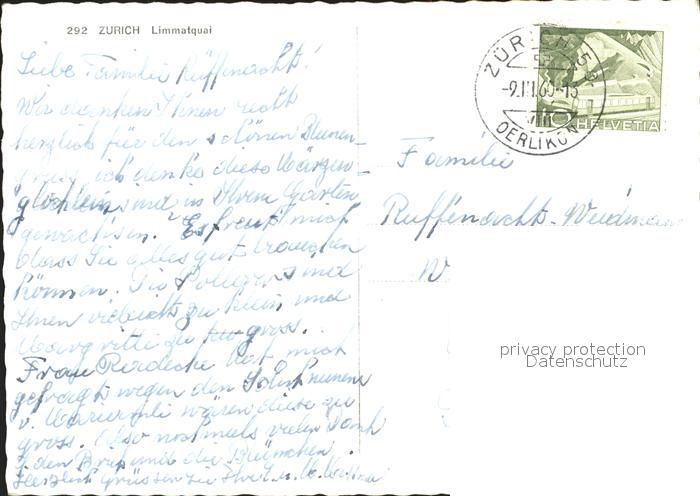 292 ZURICH Limmatquai
Liebe Familie Rüffenacht!
Wir danken Ihnen recht
herzlich für den schönen Blumen-
gruss ich denke diese Märzen-
glöcklein sind in Ihrem Garten
gewachsen. Es freut mich
dass Sie alles gut brauchen
können. Die Pullover sind
Ihnen vieleicht zu klein und
zu gross.
Frau hat mich
gefragt wegen den
v. wären diese zu
gross. Also nochmals vielen Dank
f. den Brief und die Blümchen.
Herzlich grüssen Sie
ZÜRICH 50
-9.III.65-15
OERLIKON
10 HELVETIA
Familie
Rüffenacht-Weidmann
W
privacy protection
Datenschutz